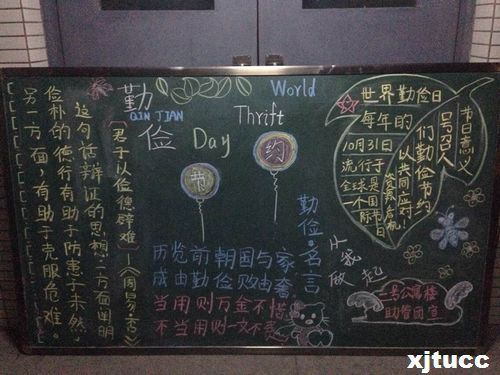 勤俭
QIN JIAN
World
Thrift
Day
节约
世界勤俭日
每年的
10月31日
流行于
全球是
一个国际
节日
节日意义
号召人
们勤俭节约
以共同应对
资源危机
《君子以俭德辟难》—《周易·否》
这句话辩证的思想一方面阐明
俭朴的德行有助于防患于未然,
另一方面,有助于克服危难。
勤俭·名言
历览前朝国与家
成由勤俭败由奢
当用则万金不惜
不当用则一文不费
从我做起
二号公寓楼
助管团宣
xjtucc